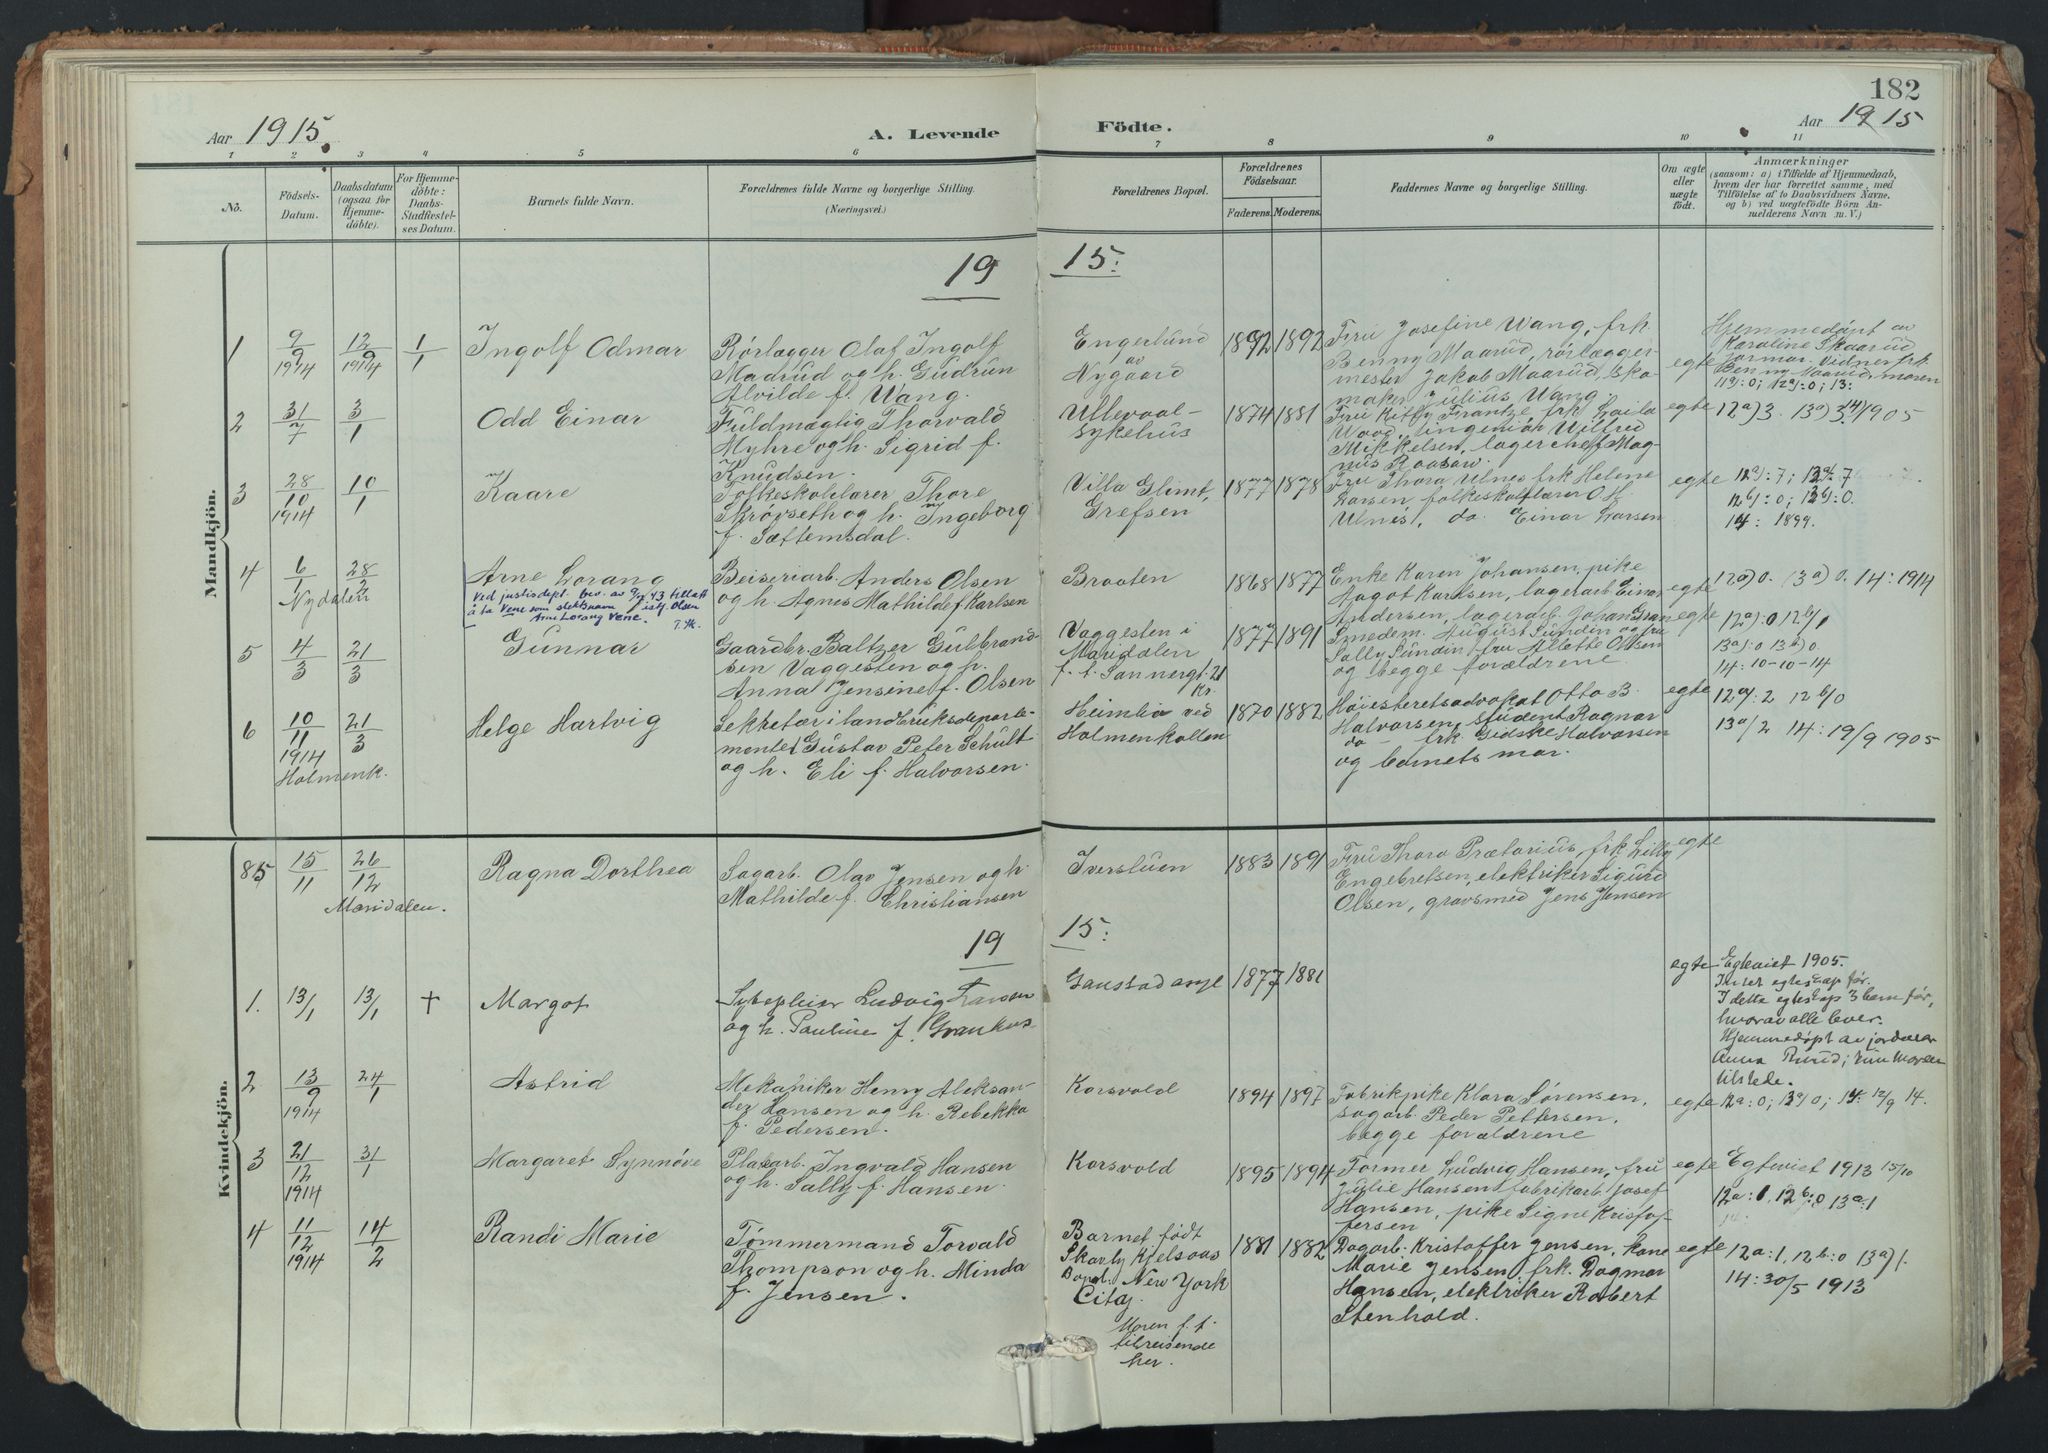 182
Aar 1915.
A. Levende
Födte.
Aar 1915
1 2 3 4 5 6 7 8 9 10 11
No.
Födsels-
Datum.
Daabsdatum
(ogsaa for
Hjemme-
döbte).
For Hjemme-
döbte:
Daabs-
Stadfæstel-
ses Datum.
Barnets fulde Navn.
Forældrenes fulde Navne og borgerlige Stilling.
(Næringsvei.)
Forældrenes Bopæl.
Forældrenes
Födselsaar.
Faderens. Moderens.
Faddernes Navne og borgerlige Stilling.
Om ægte
eller
uægte
födt.
Anmærkninger
(saasom: a) i Tilfælde af Hjemmedaab,
hvem der har forrettet samme, med
Tilföielse af to Daabsvidners Navne,
og b) ved uægtefödte Börn An-
melderens Navn m. V.)
Mandkjön.
19 15:
1 9/9 1914 12/9 1914 1/1 Ingolf Odmar
Rørlægger Olaf Ingolf
Madrud og h. Gudrun
Alvilde f. Wang.
Engerlund
av
Nygaard
1892 1892
Fru Josefine Wang, frk.
Benny Maarud, rørlægger-
mester Jakob Maarud, sko-
maker Julius Wang
egte
Hjemmedøpt av
Karoline Skaarud
jormor. Vidner frk.
Benny Maarud, moren
11a): 0; 12a): 0; 13:
2 31/7 3/1 Odd Einar
Fuldmægtig Thorvald
Myhre og h. Sigrid f.
Knudsen.
Ullevaal-
sykehus
1874 1881
Fru Kitty Frantze, frk Laila
Waad, ingeniør Wilfred
Mikkelsen, lagerchef Mag-
nus Raasaw.
egte
12a) 3. 13a) 3 14) 1905
3 28/10 1914 10/1 Kaare
Folkeskolelærer Thore
Skrøvseth og h. Ingeborg
f. Sættemsdal.
Villa Glimt,
Grefsen
1877 1878
Fru Thora Ulnes frk Helene
Larsen folkeskolelærer O. H.
Ulnes, do. Einar Larsen
egte
12a): 7; 13a): 7
12b): 0; 13b): 0.
14: 1899.
4 6/1 28/2 Arne Lorang
Nydalen
Ved justisdept. bev. av 9/7 43 tillatt
å ta Vene som slektsnavn istf. Olsen
Arne Lorang Vene.
Beiseriarb. Anders Olsen
og h. Agnes Mathilde f Karlsen
Braaten
1868 1877
Enke Karen Johansen, pike
Aagot Karlsen, lagerarb Einar
Andersen, lagerarb Johan Gran
egte
12a) 0. 13a) 0. 14: 1914
5 4/3 21/3 Gunnar
Gaardbr. Baltzer Gulbrand-
sen Vaggesten og h.
Anna Jensine f. Olsen
Vaggesten i
Maridalen
f. t. Sannergt. 21
Kr.
1877 1891
Smedem. August Sundin og fru
Sally Sundin, fru Alette Olsen
og begge forældrene
egte
12a): 0 12b) 1
13a): 0 13b) 0.
14: 10-10-14
6 10/11 1914 21/3 Helge Hartvig
Holmenk.
Sekretær i landbruksdeparte-
mentet Gustav Peter Schult
og h. Eli f. Halvorsen.
Heimlia ved
Holmenkollen
1870 1882
Høiesteretsadvokat Otto B.
Halvorsen, student Ragnar
do — frk Gidske Halvorsen
og barnets mor.
egte
12a): 2 12 b/0
13a/2 14: 19/9 1905
85 15/11 26/12 Ragna Dorthea
Maridalen.
Sagarb. Olav Jensen og h.
Mathilde f. Christiansen
Iversluen
1883 1891
Fru Thora Prætorius, frk Lilly
Engebretsen, elektriker Sigurd
Olsen, gravsmed Jens Jensen
egte
Kvindekjön.
19 15:
1. 13/1 13/1 + Margot
Sykepleier Ludvig Larsen
og h. Pauline f.
Gaustad asyl
1877 1881
egte
Egteviet 1905.
Intet egteskap før.
I dette egteskap 3 barn før,
hvorav alle lever.
Hjemmedøpt av jordmor
Anna Ruud; kun moren
tilstede.
2 13/9 1914 24/1 Astrid
Mekaniker Henry Aleksan-
der Hansen og h. Rebekka
f. Pedersen.
Korsvold
1894 1897
Fabrikpike Klara Sørensen,
sagarb. Peder Pettersen,
begge forældrene
egte
12a: 0; 13a) 0; 14: 12/9 14.
3 21/12 1914 31/1 Margaret Synnøve
Platearb. Ingvald Hansen
og h. Sally f. Hansen.
Korsvold
1895 1894
Former Ludvig Hansen, fru
Julie Hansen fabrikarb Josef
Hansen, pike Signe Kristof-
fersen
egte
Egteviet 1913 15/10
12a: 1, 12b: 0 13a: 1
4 11/12 1914 14/2 Randi Marie
Tømmermand Torvald
Thompson og h. Minda
f. Jensen.
Barnet født
Skavly Kjelsaas
Bopl. New York
City.
Moren f. t.
tilreisende
her.
1881 1882
Dagarb. Kristoffer Jensen, kone
Marie Jensen frk. Dagmar
Hansen, elektriker Robert
Stenhold.
egte
12a: 1, 12b: 0 13a) 1.
14: 30/5 1913